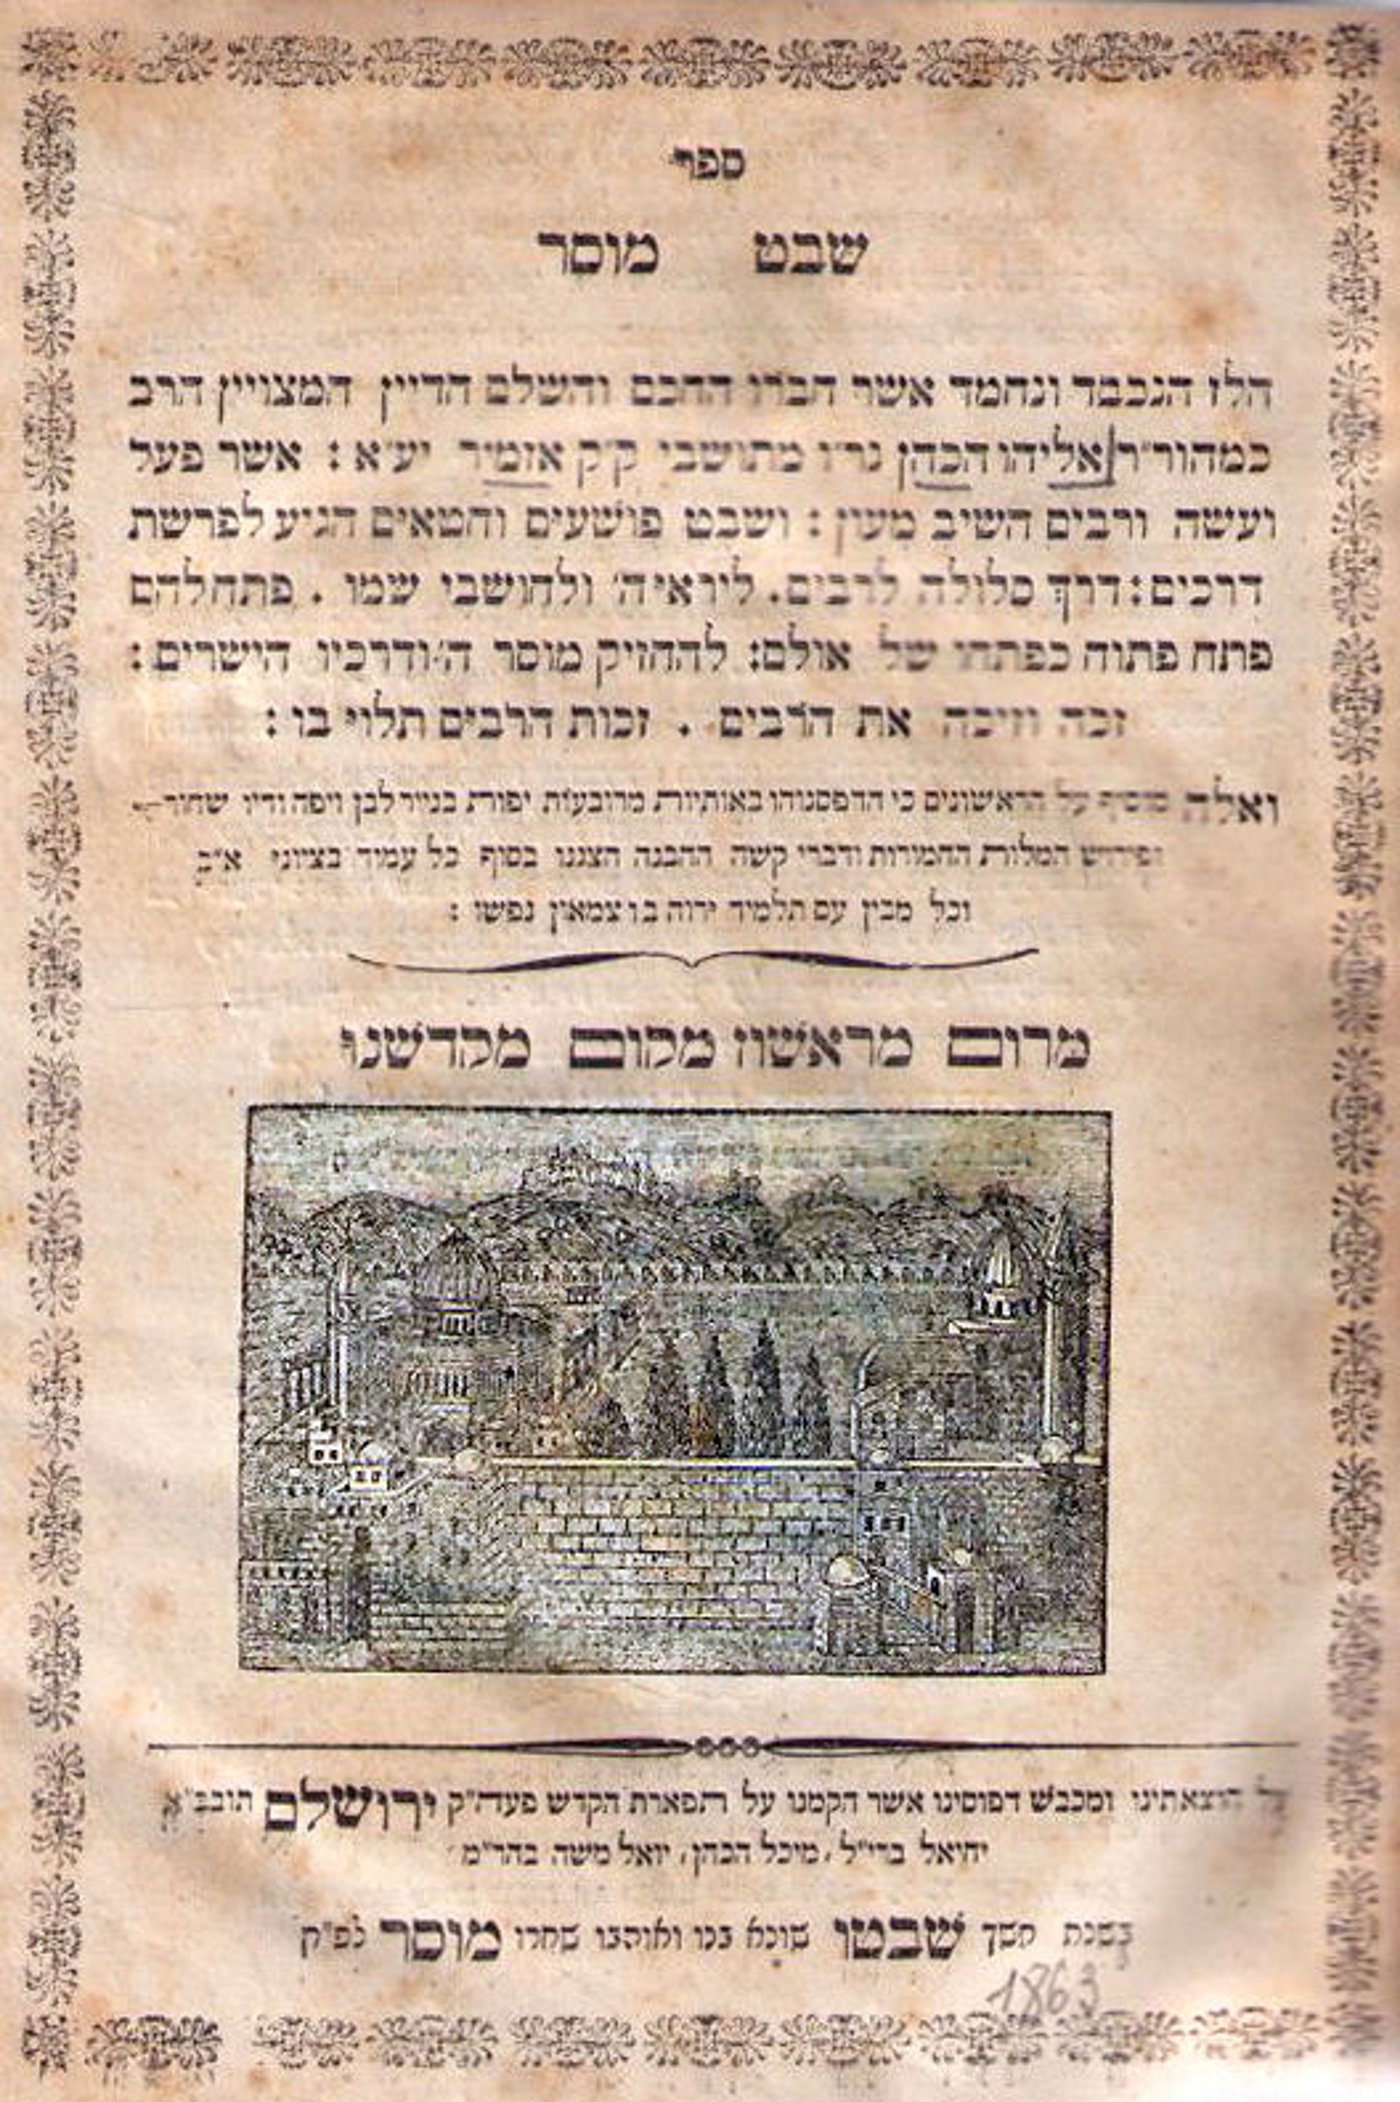 ספר
שבט מוסר
הלז הנכבד ונחמד אשר חברו החכם והשלם הדיין המצויין הרב
כמהור״ר אליהו הכהן נר״ו מתושבי ק״ק אזמיר יע״א : אשר פעל
ועשה ורבים השיב מעון : ושבט פושעים וחטאים הגיע לפרשת
דרכים : דרך סלולה לרבים . ליראי ה׳ ולחושבי שמו . פתח להם
פתח פתוח כפתחו של אולם : להחזיק מוסר ה׳ ודרכיו הישרים :
זכה וזיכה את הרבים . זכות הרבים תלוי בו :
ואלה מוסיף על הראשונים כי הדפסנוהו באותיות מרובעות יפות בנייר לבן ויפה ודיו שחור
ופירוש המלות החמורות ודברי קשה ההבנה הצגנו בסוף כל עמוד בציוני א״ב
וכל מבין עם תלמיד ירוה בו צמאון נפשו :
מרום מראשון מקום מקדשנו
הוצאתינו ומכבש דפוסינו אשר הקמנו על תפארת הקדש פעה״ק ירושלם תובב״א
יחיאל ברי״ל , מיכל הכהן , יואל משה בהר״מ
בשנת חשך שבטו שונא בנו ואוהבו שחרו מוסר לפ״ק
1863